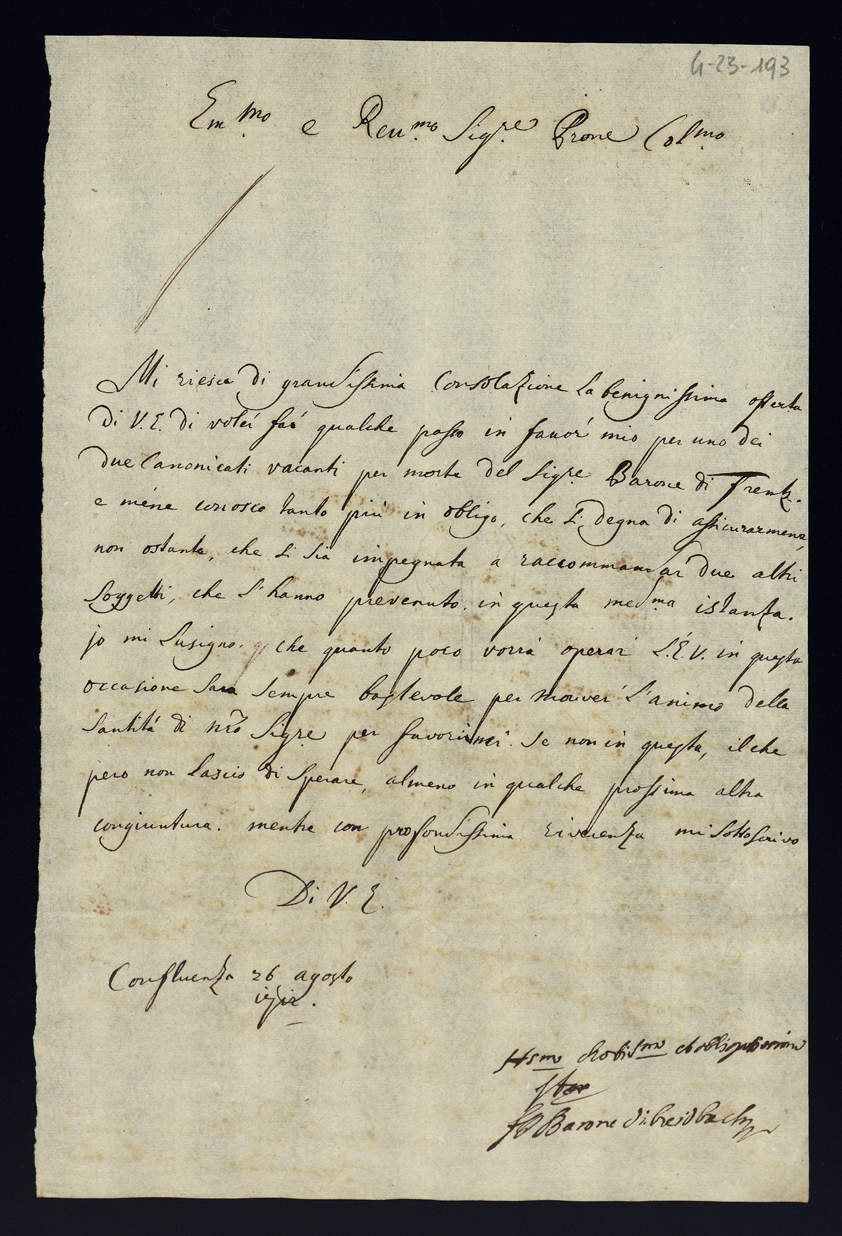 G-23-193
Em.mo e Reu.mo Sig.re Prone Col.mo
Mi riesce di grandissima Consolazione la benignissima offerta
di V.E. di voler far qualche passo in favor mio per uno dei
due Canonicati vacanti per morte del Sigre. Barone di Trenk.
e mene conosco tanto più in obligo, che si degna di assicurarmene,
non ostante, che si sia impegnata a raccommandar due altri
Soggetti, che l'hanno prevenuto. in questa medma istanza.
jo mi Lusigno che quanto poco vorrà operar L'E.V. in questa
occasione sara sempre bastevole per mover l'animo della
Santità di nro Sigre per favorirmi. se non in questa, il che
pero non lascio di sperare, almeno in qualche prossima altra
congiuntura. mentre con profondissima riverenza mi sottoscrivo
Di V.E.
Confluenza 26 agosto
H
Barone di breidbach